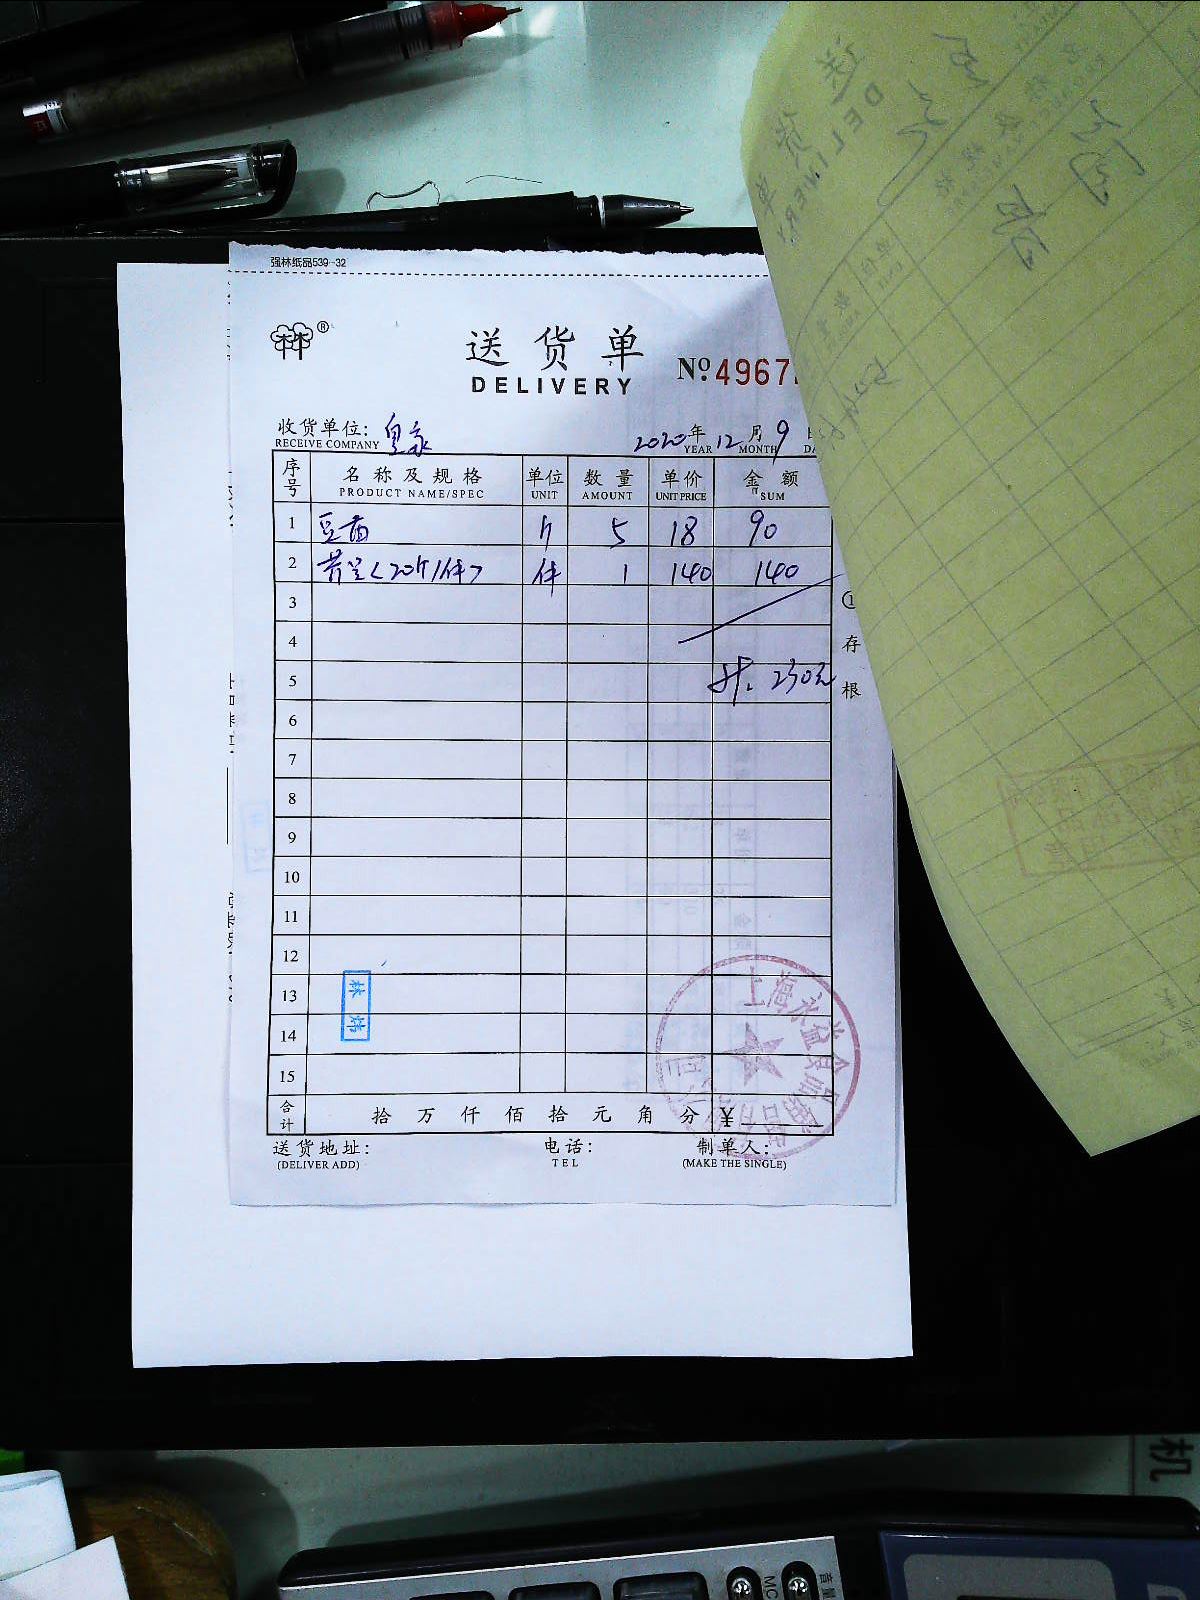 强林纸品539-32
林®
送货单
DELIVERY
№ 4967
收货单位: 皇家
RECEIVE COMPANY
2020年12月9日
YEAR MONTH
序号 名称及规格 单位 数量 单价 金额
PRODUCT NAME/SPEC UNIT AMOUNT UNIT PRICE SUM
1 豆苗 斤 5 18 90
2 <20斤/件> 件 1 140 140
3
4
5 计. 230元
6
7
8
9
10
11
12
13
14
15
①存根
林炜
上海永益食品
合计 拾万仟佰拾元角分 ¥
送货地址: 电话: 制单人:
(DELIVER ADD) TEL (MAKE THE SINGLE)
送货单
DELIVERY
机
MC